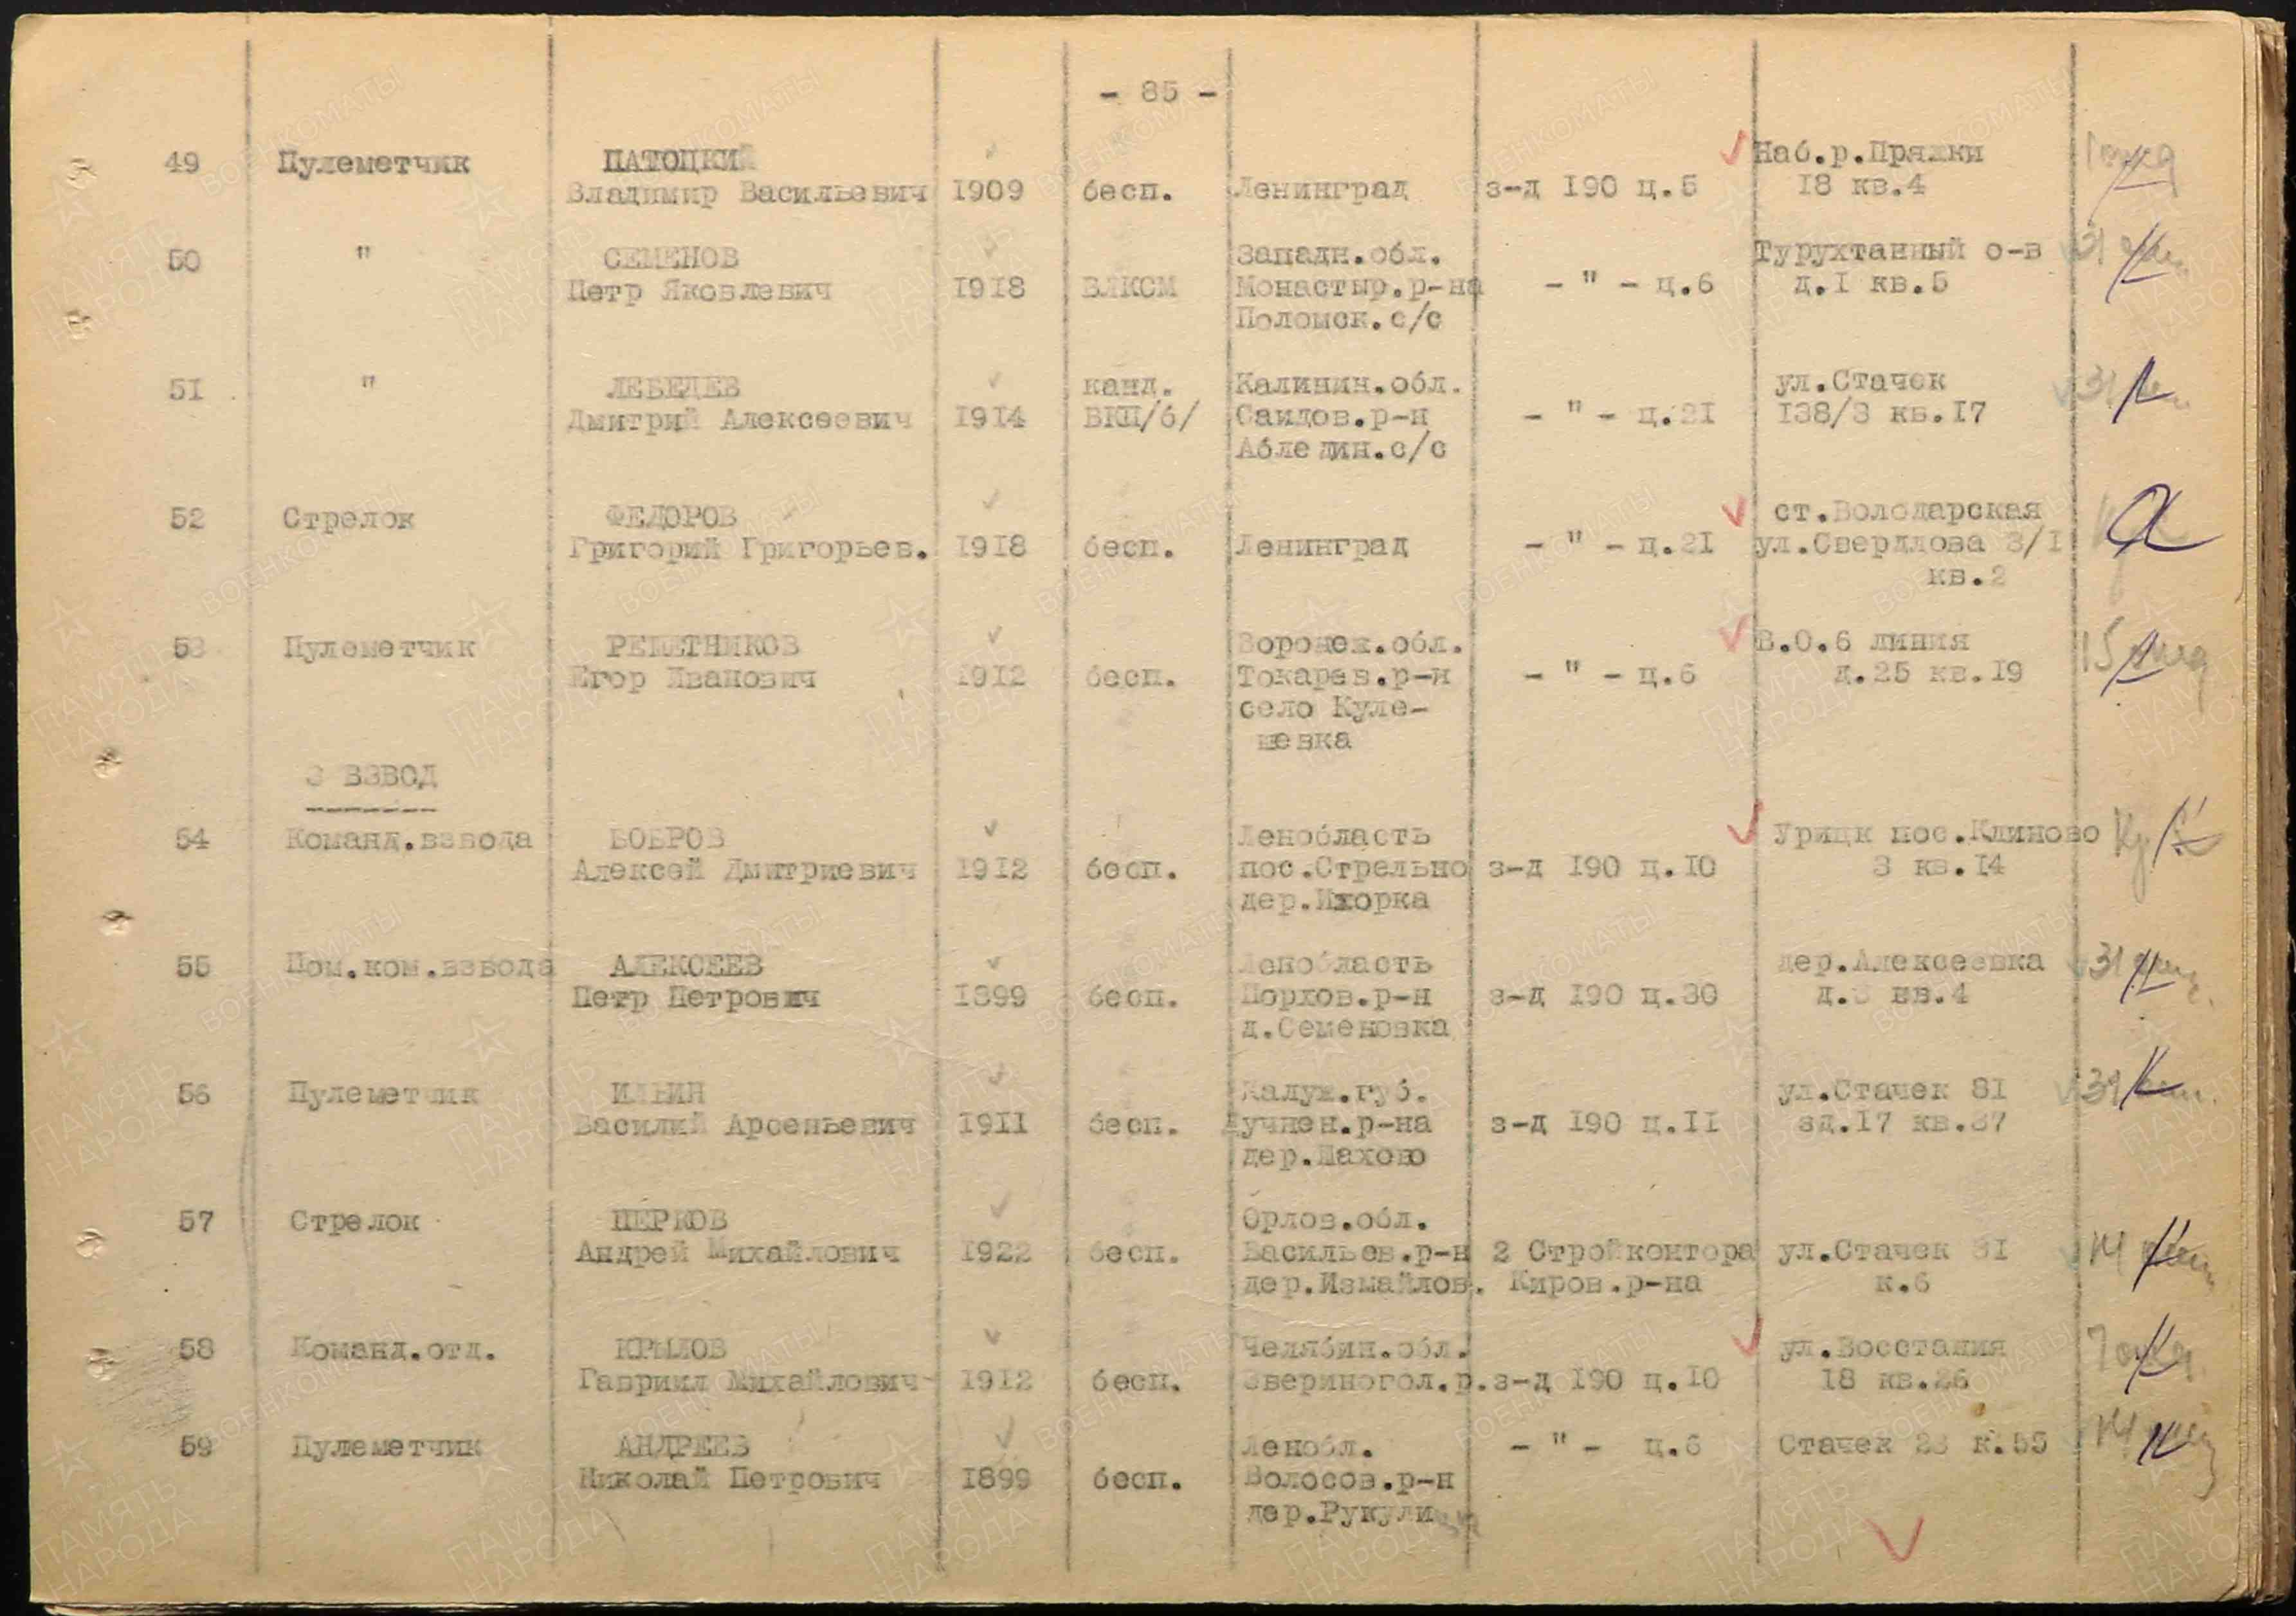 - 85 -
49 Пулеметчик ПАТОЦКИЙ Наб.р.Пряжки
Владимир Васильевич 1909 бесп. Ленинград з-д 190 ц.5 18 кв.4
50 " СЕМЕНОВ Западн.обл. Турухтанный о-в
Петр Яковлевич 1918 ВЛКСМ Монастыр.р-на - " - ц.6 д.1 кв.5
Поломск.с/с
51 " ЛЕБЕДЕВ канд. Калинин.обл. ул.Стачек
Дмитрий Алексеевич 1914 ВКП/б/ Сандов.р-н - " - ц.21 138/3 кв.17
Абледин.с/с
52 Стрелок ФЕДОРОВ ст.Володарская
Григорий Григорьев. 1918 бесп. Ленинград - " - ц.21 ул.Свердлова 3/1
кв.2
53 Пулеметчик РЕШЕТНИКОВ Воронеж.обл. В.О.6 линия
Егор Иванович 1912 бесп. Токарев.р-н - " - ц.6 д.25 кв.19
село Куле-
шевка
3 ВЗВОД
54 Команд.взвода БОБРОВ Ленобласть Урицк пос.Клиново
Алексей Дмитриевич 1912 бесп. пос.Стрельно з-д 190 ц.10 3 кв.14
дер.Ижорка
55 Пом.ком.взвода АЛЕКСЕЕВ Ленобласть дер.Алексеевка
Петр Петрович 1899 бесп. Порхов.р-н з-д 190 ц.30 д. кв.4
д.Семеновка
56 Пулеметчик ИЛЬИН Калуж.губ. ул.Стачек 81
Василий Арсеньевич 1911 бесп. з-д 190 ц.11 зд.17 кв.37
дер.
57 Стрелок ПЕРКОВ Орлов.обл.
Андрей Михайлович 1922 бесп. Васильев.р-н 2 Стройконтора ул.Стачек
дер.Измайлов. Киров.р-на к.6
58 Команд.отд. КРЫЛОВ Челябин.обл. ул.Восстания
Гавриил Михайлович 1912 бесп. Звериногол.р. з-д 190 ц.10 18 кв.26
59 Пулеметчик АНДРЕЕВ Ленобл. - " - ц.6 Стачек к.55
Николай Петрович 1899 бесп. Волосов.р-н
дер.Рукули